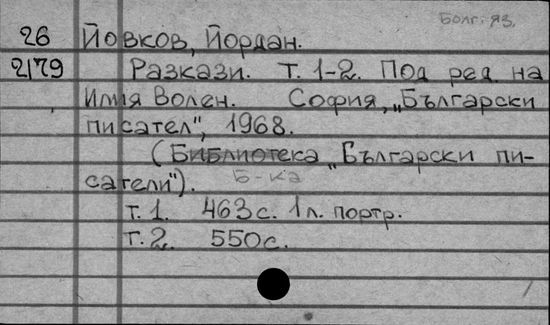 Болг. яз.
26 Йовков, Йордан.
2179 Разкази. Т. 1-2. Под ред. на
Илия Волен. София, „Български
писател", 1968.
(Библиотека „Български пи-
Б-ка
сатели").
т. 1. 463 с. 1 л. портр.
т. 2. 550 с.